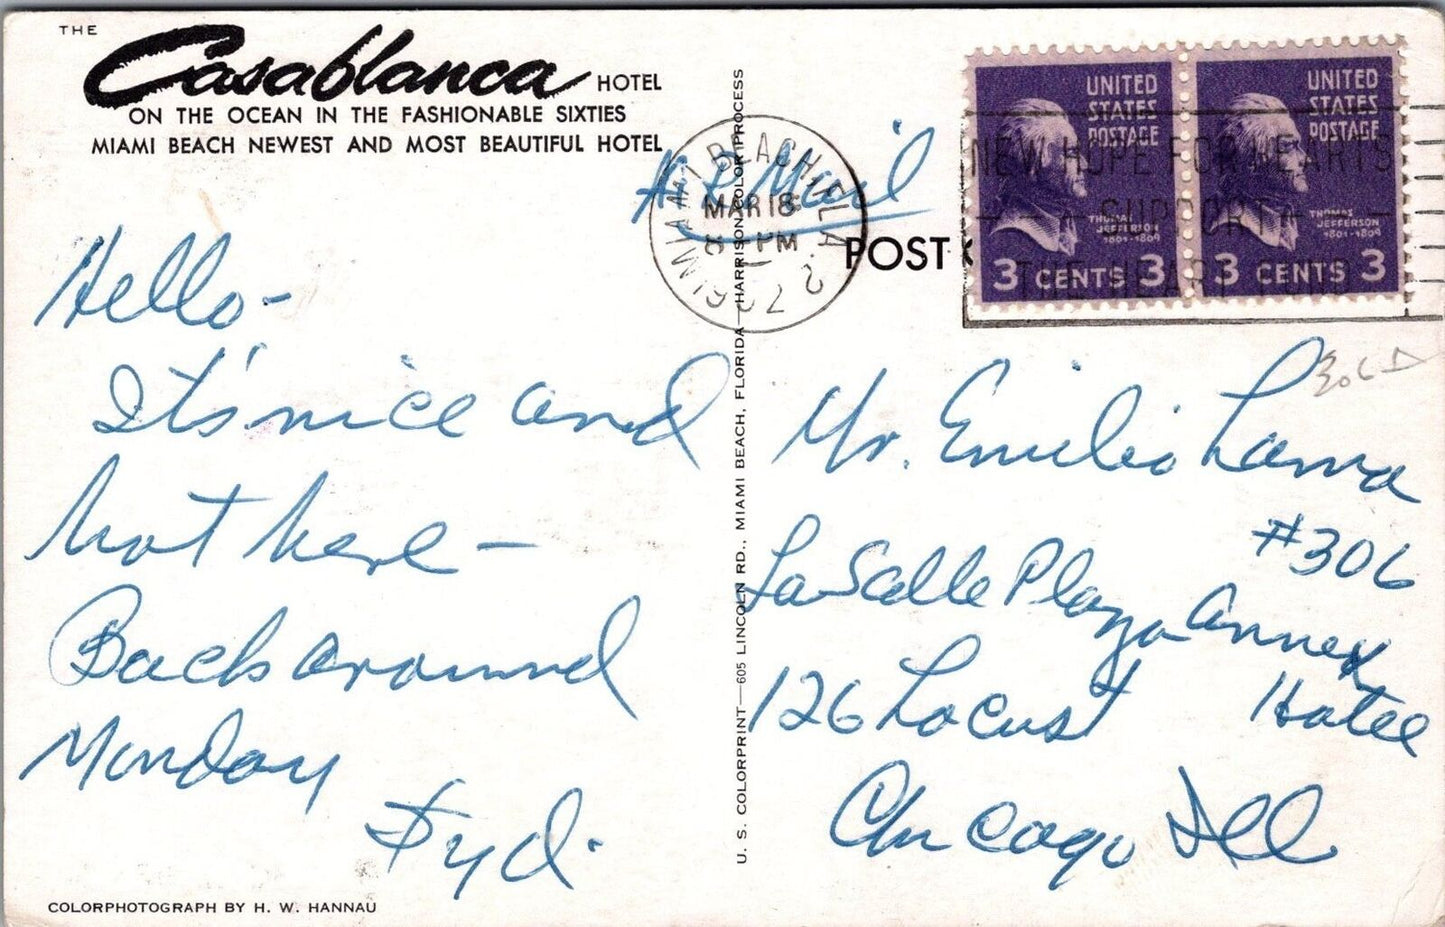 THE
Casablanca HOTEL
ON THE OCEAN IN THE FASHIONABLE SIXTIES
MIAMI BEACH NEWEST AND MOST BEAUTIFUL HOTEL
Hello-
It's nice and
hot here —
Back around
Monday
Syd.
COLORPHOTOGRAPH BY H. W. HANNAU
U. S. COLORPRINT—605 LINCOLN RD., MIAMI BEACH, FLORIDA—HARRISON COLOR PROCESS
Mail
MIAMI BEACH, FLA. 27
MAR 18
1 PM
POST
UNITED
STATES
POSTAGE
THOMAS
JEFFERSON
1801-1809
3 CENTS 3
UNITED
STATES
POSTAGE
THOMAS
JEFFERSON
1801-1809
3 CENTS 3
NEW HOPE FOR HEARTS
SUPPORT
THE HEART FUND
Mr. Emilio Lama
#306
LaSalle Plaza Annex
126 Locust Hotel
Chicago Ill